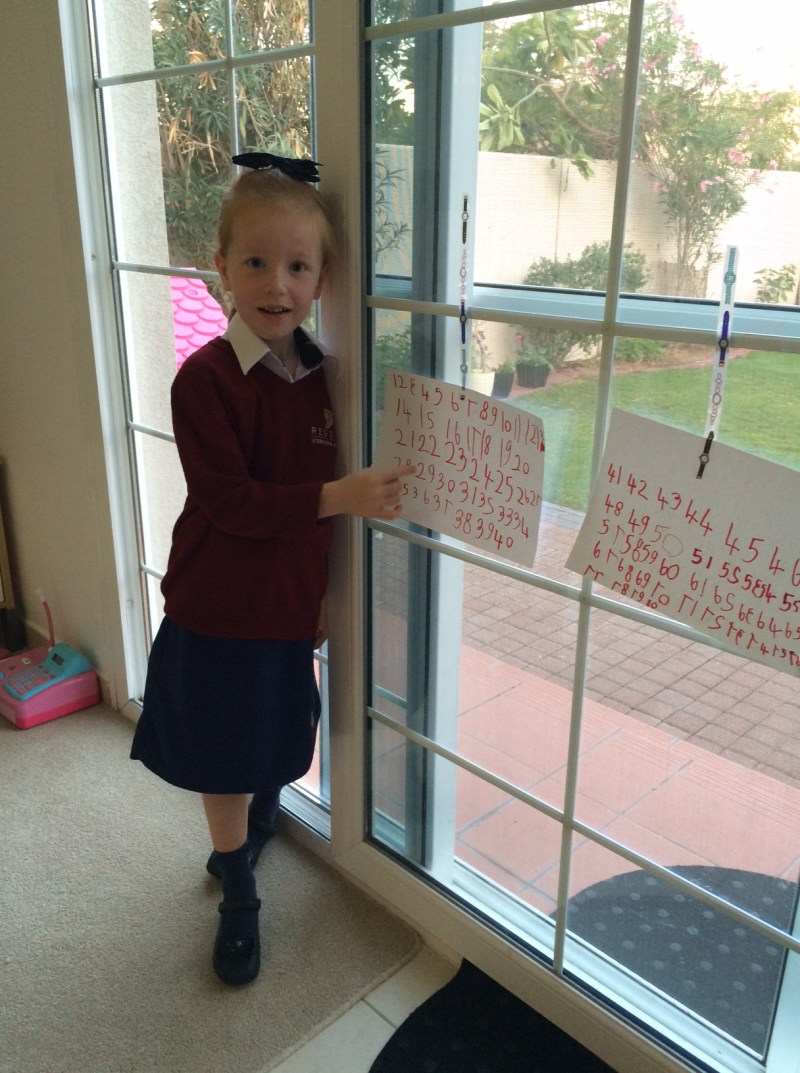 1 2 3 4 5 6 7 8 9 10 11 12 13
14 15 16 17 18 19 20
21 22 23 24 25 26 27
28 29 30 31 32 33 34
35 36 37 38 39 40
41 42 43 44 45 46
48 49 50 51 52 53 54 55
57 58 59 60 61 62 63 64 65
67 68 69 70 71 72 73 74 75 76
77 78 79 80